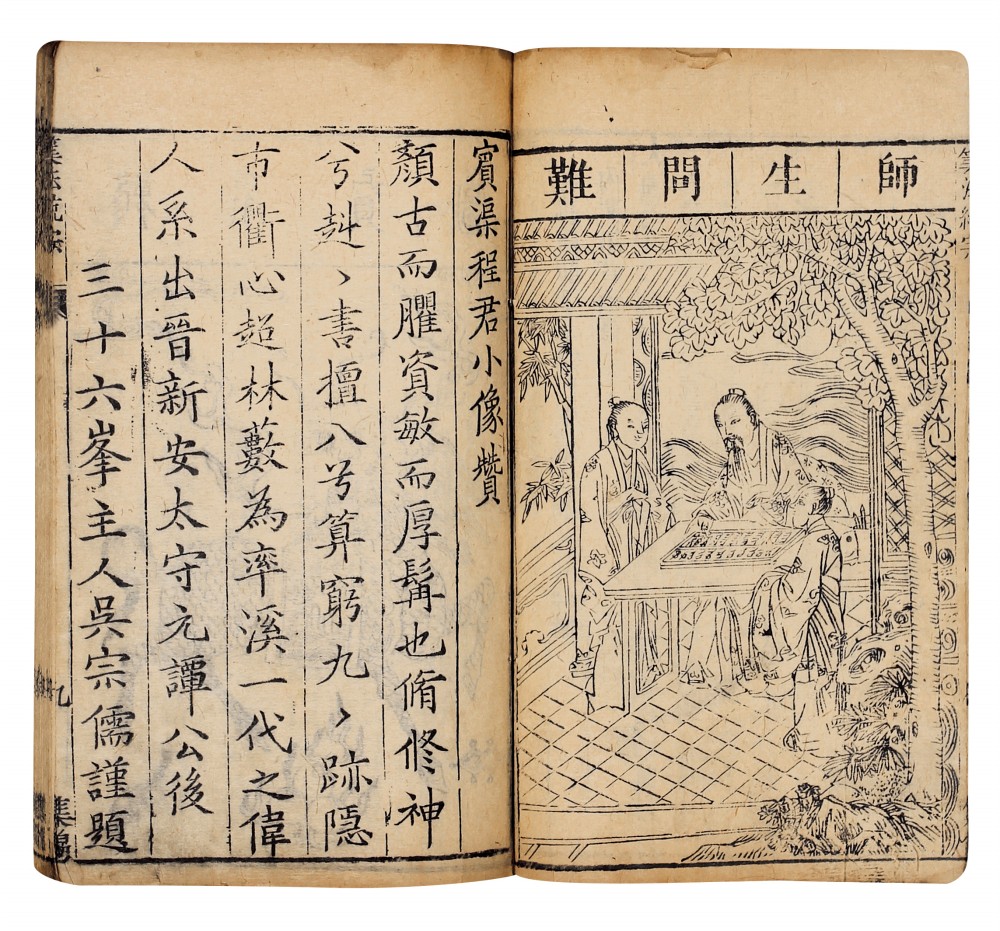 師生問難
賓渠程君小像贊
顏古而臞資敏而厚髯也脩修神
兮赳〻書擅八兮算窮九〻跡隱
市衢心超林藪為率溪一代之偉
人系出晉新安太守元譚公後
三十六峯主人吳宗儒謹題